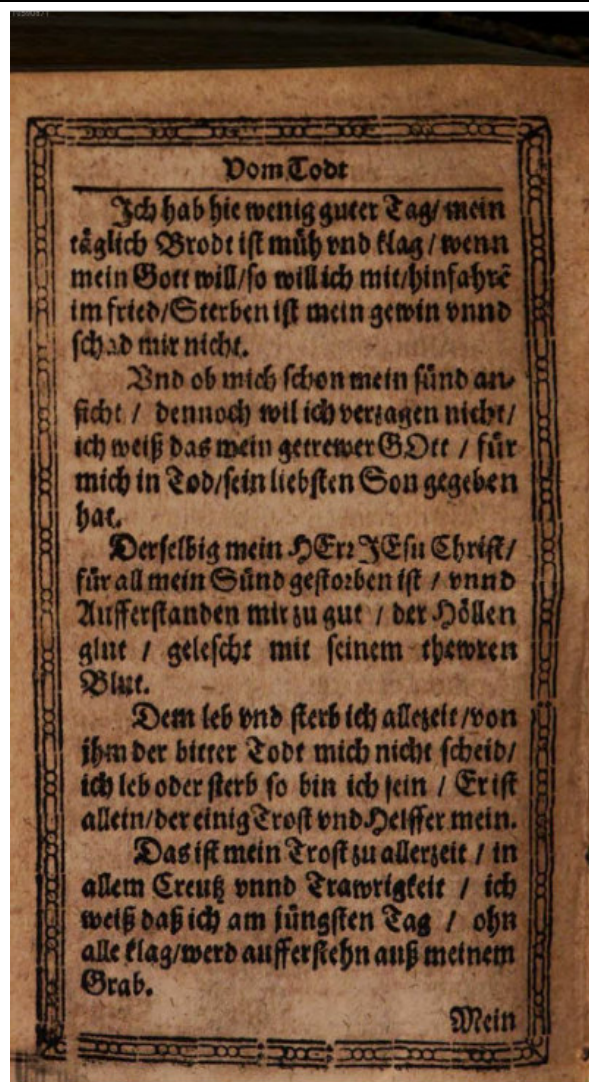 Vom Todt
Ich hab hie wenig guter Tag/ mein
täglich Brodt ist müh vnd klag / wenn
mein Gott will/so will ich mit/hinfahrẽ
im fried/Sterben ist mein gewin vnnd
schad mir nicht.
Vnd ob mich schon mein sünd an-
ficht / dennoch wil ich verzagen nicht/
ich weiß das mein getrewer GOtt / für
mich in Tod/sein liebsten Son gegeben
hat.
Derselbig mein HErr JEsu Christ/
für all mein Sünd gestorben ist / vnnd
Aufferstanden mir zu gut / der Höllen
glut / gelescht mit seinem thewren
Blut.
Dem leb vnd sterb ich allezeit/von
jhm der bitter Todt mich nicht scheid/
ich leb oder sterb so bin ich sein / Er ist
allein/der einig Trost vnd Helffer mein.
Das ist mein Trost zu allerzeit / in
allem Creutz vnnd Trawrigkeit / ich
weiß daß ich am jüngsten Tag / ohn
alle klag/werd aufferstehn auß meinem
Grab.
Mein